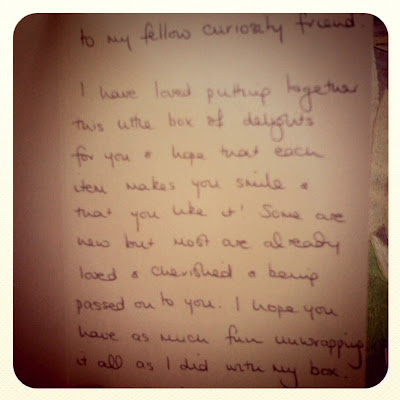 to my fellow curiosity friend.
I have loved putting together
this little box of delights
for you & hope that each
item makes you smile &
that you like it! Some are
new but most are already
loved & cherished & being
passed on to you. I hope you
have as much fun unwrapping
it all as I did with my box.